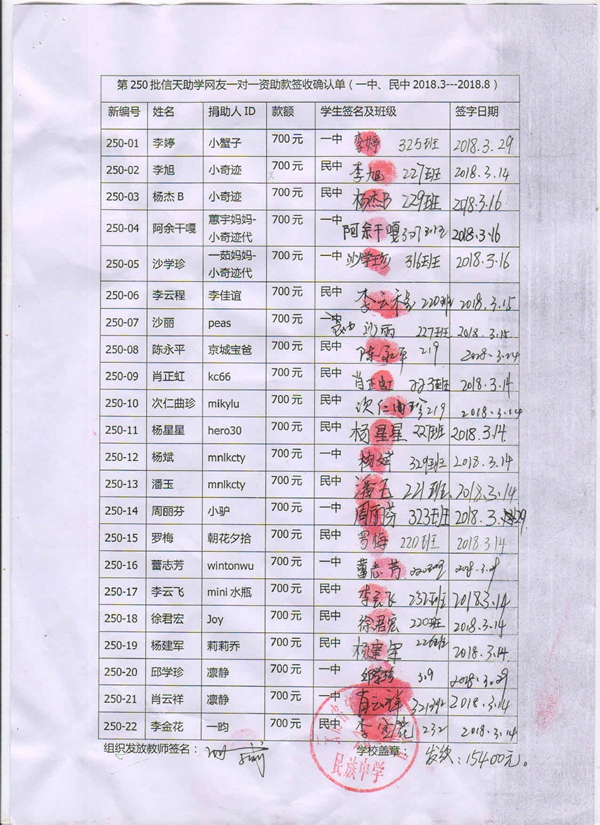 第250批信天助学网友一对一资助款签收确认单（一中、民中2018.3---2018.8）
新编号 姓名 捐助人ID 款额 学生签名及班级 签字日期
250-01 李婷 小蟹子 700元 一中 李婷 325班 2018.3.29
250-02 李旭 小奇迹 700元 民中 李旭 227班 2018.3.14
250-03 杨杰B 小奇迹 700元 民中 杨杰B 229班 2018.3.16
250-04 阿余干嘎 蕙宇妈妈-小奇迹代 700元 一中 阿余干嘎 2018.3.16
250-05 沙学珍 一茹妈妈-小奇迹代 700元 一中 沙学珍 316班 2018.3.16
250-06 李云程 李佳谊 700元 民中 李云程 220班 2018.3.15
250-07 沙丽 peas 700元 民中 沙丽 227班 2018.3.15
250-08 陈永平 京城宝爸 700元 民中 陈永平 219 2018.3.14
250-09 肖正虹 kc66 700元 民中 肖正虹 223班 2018.3.14
250-10 次仁曲珍 mikylu 700元 民中 次仁曲珍 219 2018.3.14
250-11 杨星星 hero30 700元 民中 杨星星 2018.3.14
250-12 杨斌 mnlkcty 700元 一中 杨斌 329班 2018.3.14
250-13 潘玉 mnlkcty 700元 民中 潘玉 221班 2018.3.14
250-14 周丽芬 小驴 700元 一中 周丽芬 323班 2018.3.29
250-15 罗梅 朝花夕拾 700元 民中 罗梅 220班 2018.3.14
250-16 蕾志芳 wintonwu 700元 一中 蕾志芳 2018.3.29
250-17 李云飞 mini水瓶 700元 民中 李云飞 232班 2018.3.14
250-18 徐君宏 Joy 700元 民中 徐君宏 220班 2018.3.14
250-19 杨建军 莉莉乔 700元 民中 杨建军 226班 2018.3.14
250-20 邱学珍 凛静 700元 一中 邱学珍 319 2018.3.29
250-21 肖云祥 凛静 700元 一中 肖云祥 2018.3.14
250-22 李金花 一昀 700元 民中 李金花 232 2018.3.14
组织发放教师签名： 学校盖章： 发放：15400元。
民族中学